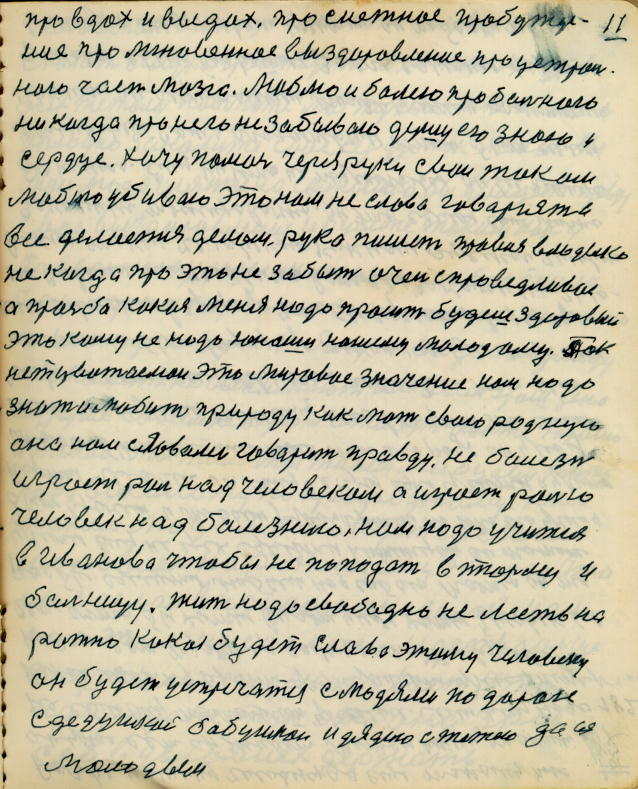 про вдох и выдох. про снежное пробужде- 11
ние про мгновенное выздоровление про
ного част мозга. Люблю и болею про болного
никогда про него не забываю душу его знаю и
сердце. Хочу помоч через руки свои током
убиваю это нам не слова говарят а
все делоется делом. рука пишет правая владыко
не когда про это не забыт очен справедливое
а прозба какая меня надо просит будеш здоровий
это кому не надо юношы нашему молодому. Так
нет уважаемои это мировое значение нам надо
зноти любит природу как мат свою родную
она нам словами говарит правду. не болезн
играет рол над человекам а играет ролю
человек над болезнию, нам надо учится
в Иванова чтобы не пападат в тюрму и
болницу. жит надо свабодно не лесть на
рожно какая будет слава этому человеку
он будет устречатся с людями по дороге
с дедушкой бабушкой и дядию с тетию да и
молодым